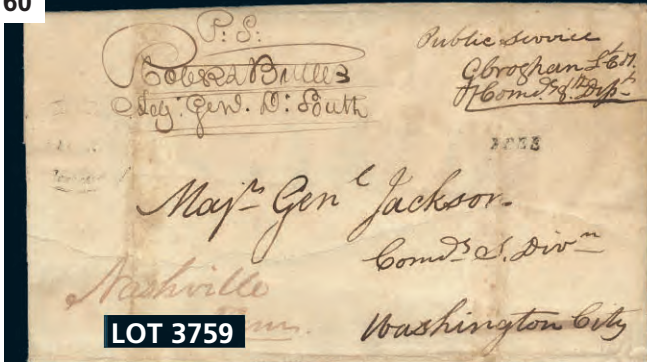 60
P: S:
Robert Butler
Adj: Genl. D: South
Public Service
G Croghan Lt Col.
Comdg. 8th Dept
FREE
Majr. Genl Jackson
Comdg S. Divn
Nashville
Tenn.
Washington City
LOT 3759